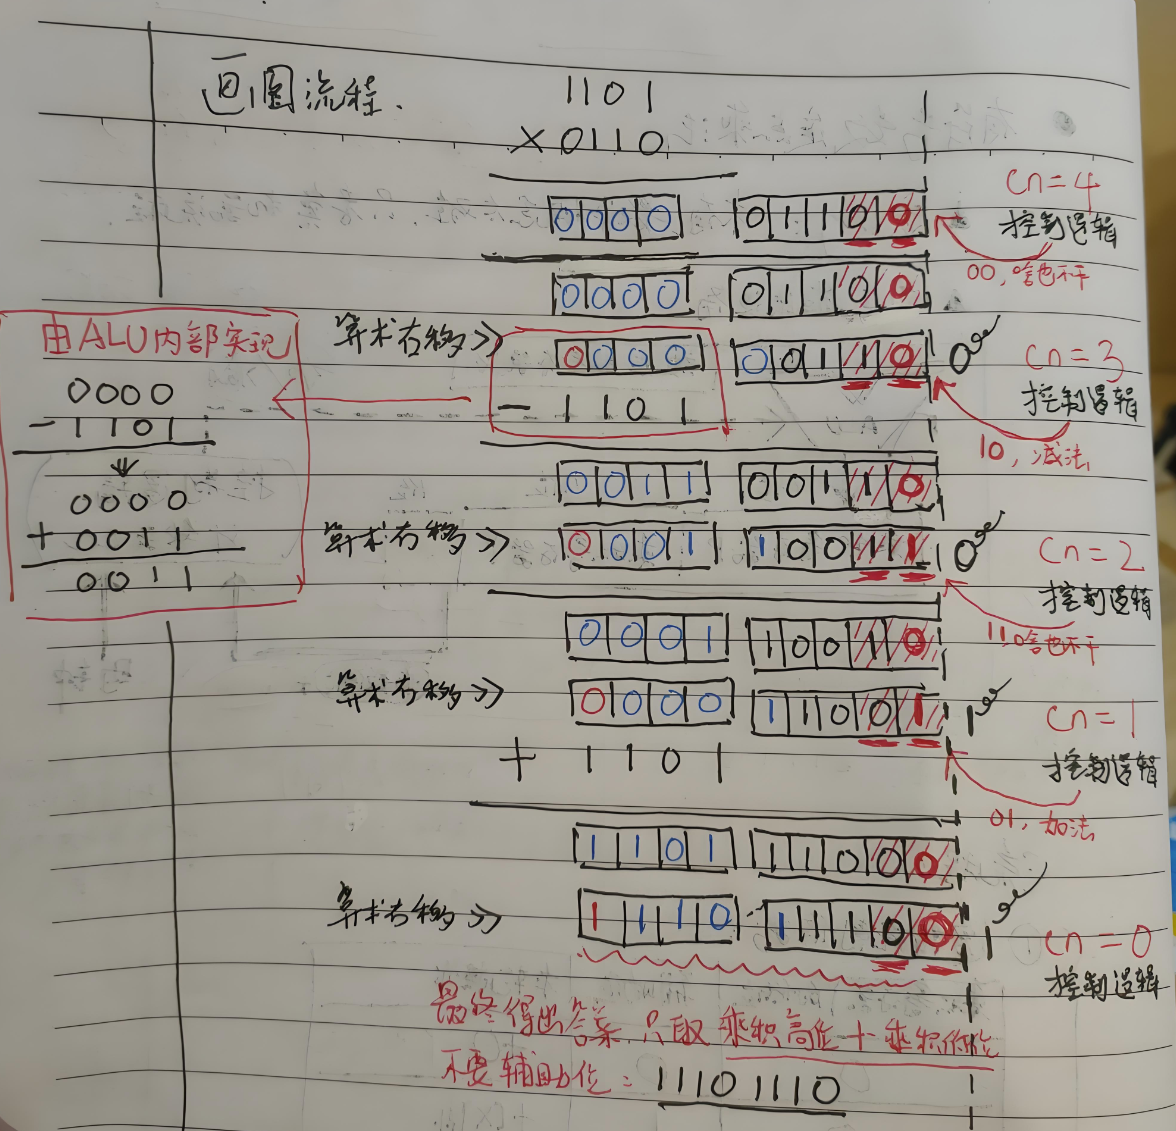 画图流程.
1101
×0110
0000 01100 cn=4
控制逻辑
00,啥也不干
0000 01100
由ALU内部实现
算术右移>> 0000 00110 0 cn=3
控制逻辑
0000
-1101
-1101
10,减法
0000
+0011
0011
0011 00110
算术右移>> 0001 10011 0 cn=2
控制逻辑
11啥也不干
0001 10010
算术右移>> 0000 11001 1 cn=1
控制逻辑
+1101
01,加法
1101 11000
算术右移>> 1110 11100 1 cn=0
控制逻辑
最终得出答案,只取乘积高位+乘积低位
不要辅助位: 11101110